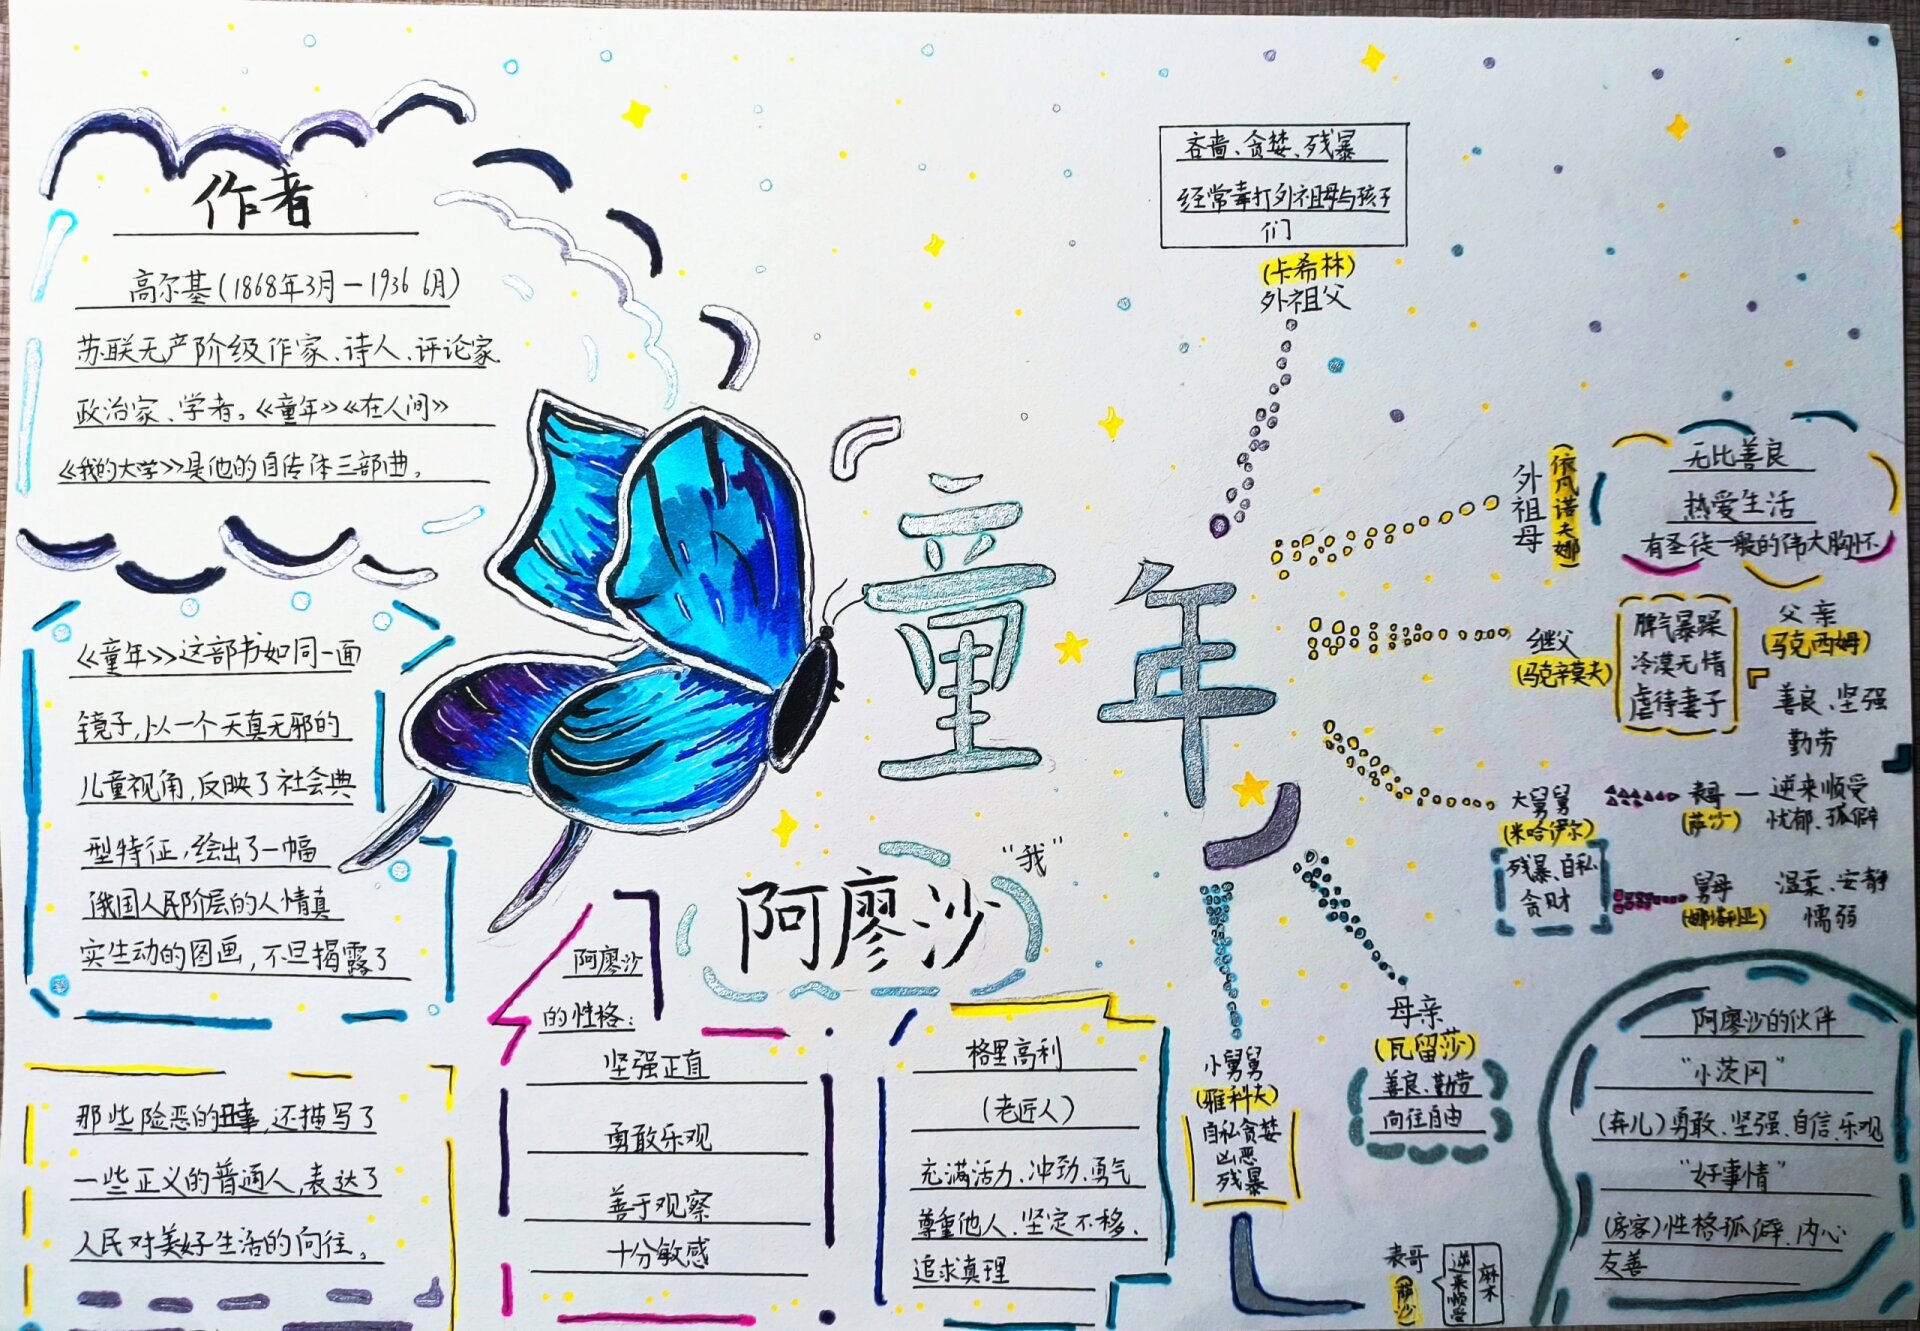 作者
高尔基(1868年3月—1936 6月)
苏联无产阶级作家、诗人、评论家.
政治家、学者。《童年》《在人间》
《我的大学》是他的自传体三部曲。
《童年》这部书如同一面
镜子,以一个天真无邪的
儿童视角,反映了社会典
型特征,绘出了一幅
俄国人民阶层的人情真
实生动的图画,不旦揭露了
那些险恶的丑事,还描写了
一些正义的普通人,表达了
人民对美好生活的向往。
童年
"我"
阿廖沙
阿廖沙
的性格:
坚强正直
勇敢乐观
善于观察
十分敏感
格里高利
(老匠人)
充满活力、冲劲、勇气
尊重他人、坚定不移、
追求真理
吝啬、贪婪、残暴
经常毒打外祖母与孩子
们
(卡希林)
外祖父
外祖母
(依凡诺夫娜)
无比善良
热爱生活
有圣徒一般的伟大胸怀
继父
(马克辛莫夫)
脾气暴躁
冷漠无情
虐待妻子
父亲
(马克西姆)
善良、坚强
勤劳
大舅舅
(米哈伊尔)
残暴、自私
贪财
表哥—逆来顺受
(萨沙) 忧郁、孤僻
舅母 温柔、安静
(娜塔利亚) 懦弱
母亲
(瓦留莎)
善良、勤劳
向往自由
小舅舅
(雅科夫)
自私贪婪
凶恶
残暴
表哥
(萨沙)
逆来顺受
麻木
阿廖沙的伙伴
"小茨冈"
(弃儿)勇敢、坚强、自信、乐观
"好事情"
(房客)性格孤僻、内心
友善